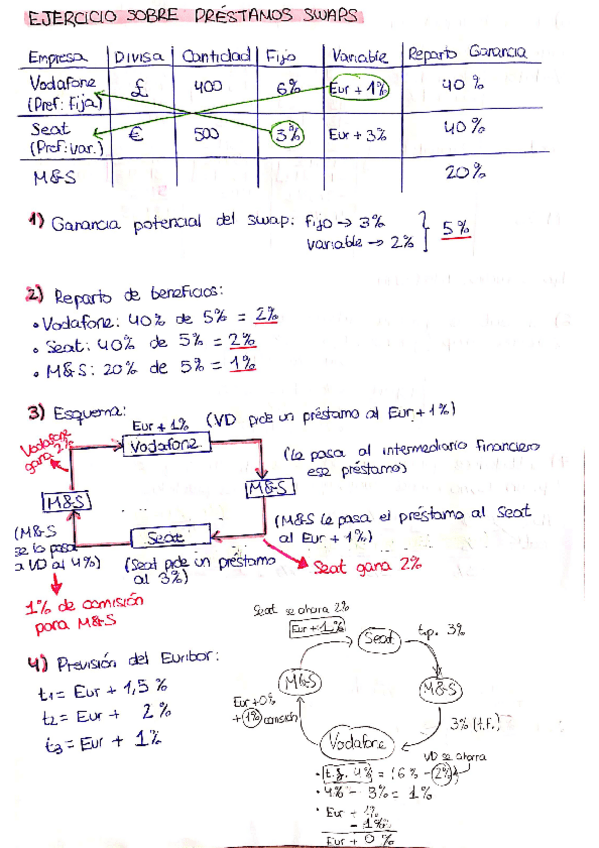 EJERCICIO SOBRE PRÉSTAMOS SWAPS
Empresa Divisa Cantidad Fijo Variable Reparto Ganancia
Vodafone (Pref: Fija) £ 400 6% Eur + 1% 40%
Seat (Pref: var.) € 500 3% Eur + 3% 40%
M&S 20%
1) Ganancia potencial del swap: Fijo → 3%
variable → 2% } 5%
2) Reparto de beneficios:
• Vodafone: 40% de 5% = 2%
• Seat: 40% de 5% = 2%
• M&S: 20% de 5% = 1%
3) Esquema:
Eur + 1% (VD pide un préstamo al Eur + 1%)
Vodafone gana 2%
Vodafone
(Le pasa al intermediario financiero
ese préstamo)
M&S
M&S
(M&S le pasa el préstamo al Seat
al Eur + 1%)
Seat
(M&S
se lo pasa
a VD al 4%)
(Seat pide un préstamo
al 3%)
Seat gana 2%
1% de comisión
para M&S
Seat se ahorra 2%
Eur + 1%
Seat
t.p. 3%
4) Previsión del Euribor:
t1 = Eur + 1,5%
t2 = Eur + 2%
t3 = Eur + 1%
M&S
M&S
Eur + 0%
+ 1% comisión
3% (t.F.)
Vodafone
VD se ahorra
• t.f. 4% = (6% - 2%)
• 4% - 3% = 1%
• Eur + 1%
- 1%
Eur + 0%